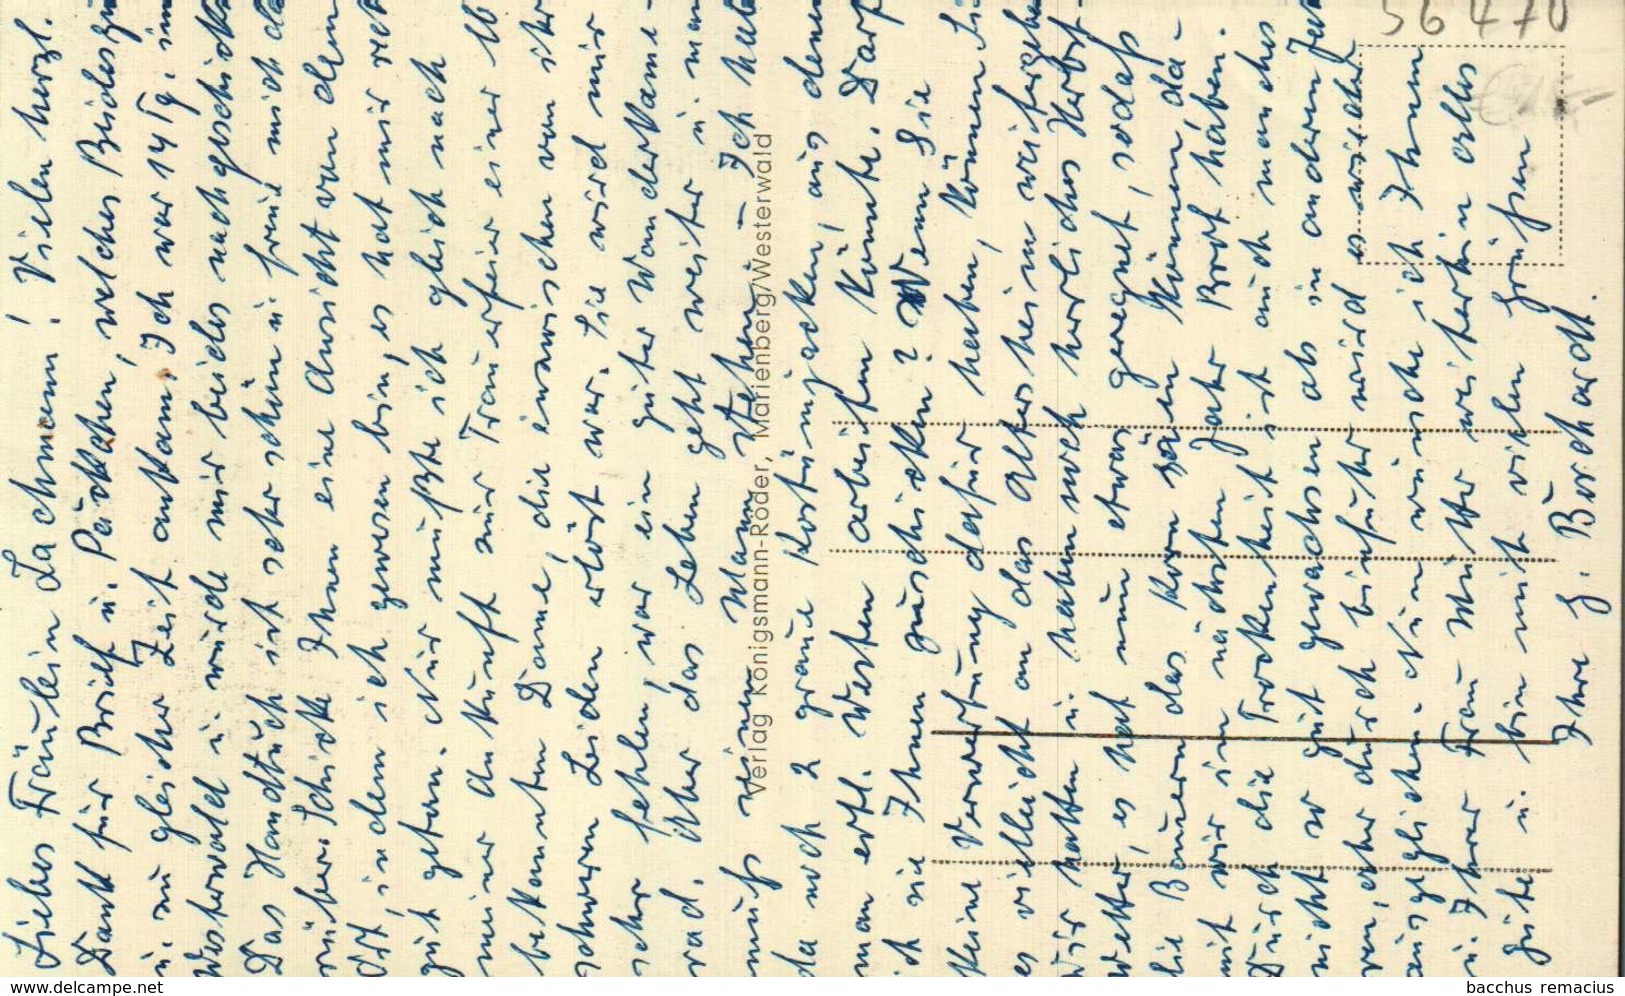 Liebes Fräulein Lachmann! Vielen herzl.
Dank für Brief u. Päckchen, welches Beides zu
u. zu gleicher Zeit ankam. Ich war 14 Tg. im
Westerwald u. wurde mir beides nachgeschickt
Das Handtuch ist sehr schön u. freue mich
rüber. Schicke Ihnen eine Ansicht von dem
Ort, in dem ich gewesen bin, es hat mir
gut getan. Nur mußte ich gleich nach
meiner Ankunft zur Trauerfeier einer lb
bekannten Dame, die inzwischen von ihr
schweren Leiden erlöst war. Sie wird mir
sehr fehlen, war ein guter Wanderkame-
rad. Aber das Leben geht weiter u. man
muß seinen Mann stehen. Ich habe
da noch 2 graue Kostümjacken, aus denen
man evtl. Westen arbeiten könnte. Darf
ich sie Ihnen zuschicken? Wenn Sie
keine Verwertung dafür haben, können Sie
es vielleicht an das Altersheim weitergeben
Wir hatten u. haben noch herrliches Herbst
wetter, es hat nun etwas geregnet, sodaß
die Bauern das Korn säen können, da-
mit wir im nächsten Jahr Brot haben.
Durch die Trockenheit ist auch manches
nicht so gut gewachsen als in andern
ren, aber durch Einfuhr wird es wieder
ausgeglichen. Nun wünsche ich Ihnen
u. Ihrer Frau Mutter weiterhin alles
Gute u. bin mit vielen Grüßen
Ihre G. Borchardt.
Verlag Königsmann-Röder, Marienberg/Westerwald
56470
www.delcampe.net
bacchus remacius